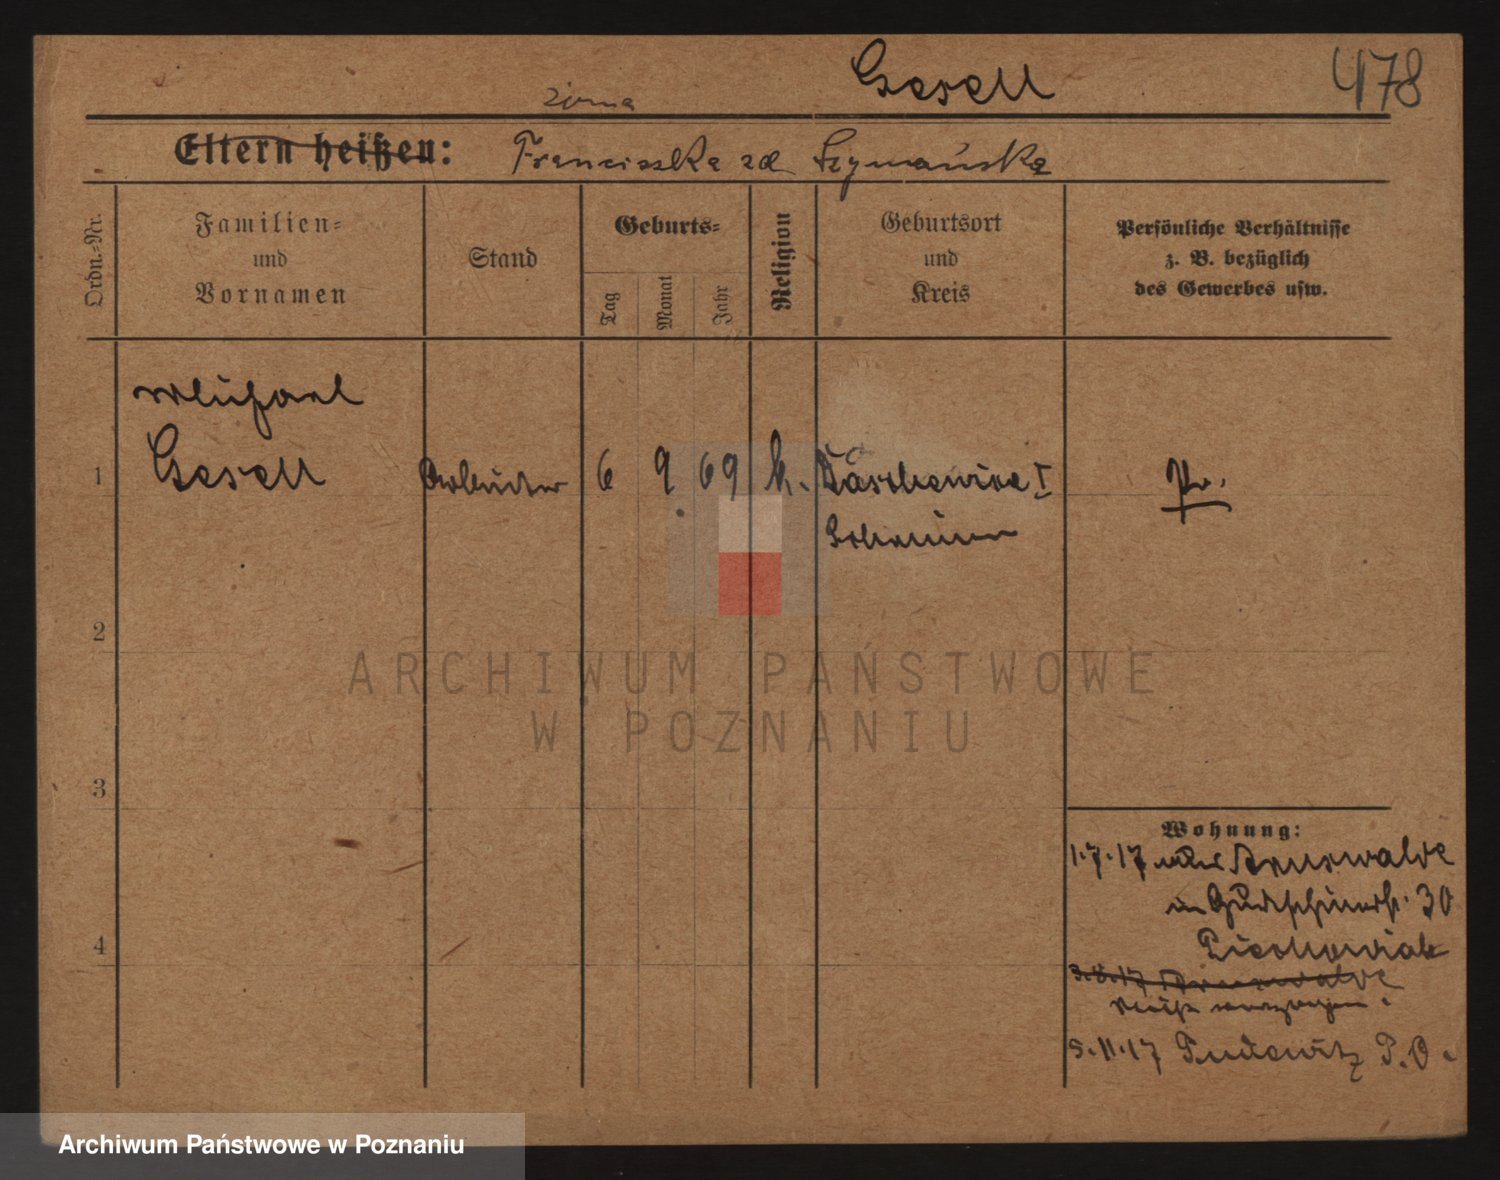 Gesell 478
żona
Eltern heißen: Franciszka zd Szymańska
Ordn.-Nr.
Familien-
und
Vornamen
Stand
Geburts-
Tag
Monat
Jahr
Religion
Geburtsort
und
Kreis
Persönliche Verhältnisse
z. B. bezüglich
des Gewerbes usw.
Michael
1 Gesell Arbeiter 6 9 69 k. I Pr.
2
3
4
Wohnung:
1.7.17 Arnswalde
30
3.8.17 Arnswalde
nicht verzogen.
5.11.17 Pudewitz P.O.
ARCHIWUM PAŃSTWOWE
W POZNANIU
Archiwum Państwowe w Poznaniu